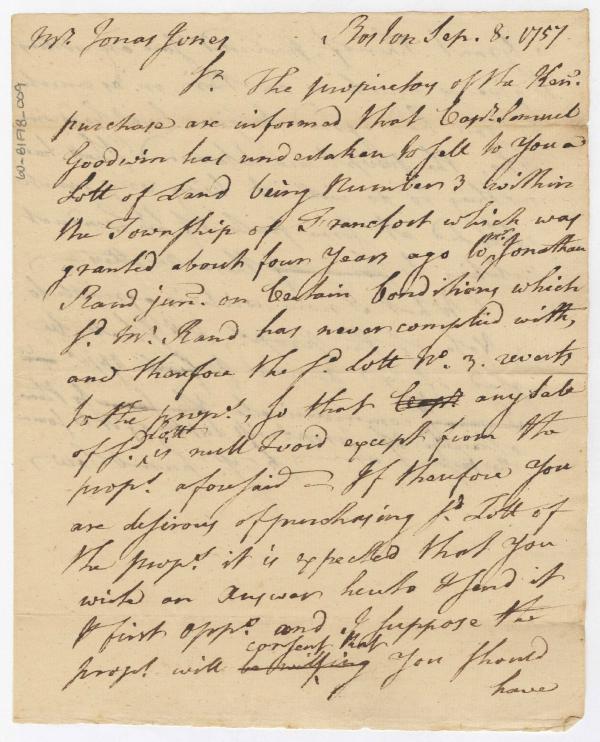 Mr. Jonas Jones Boston Sep. 8. 1757
Sr. The proprietors of the Ken:
purchase are informed that Capt. Samuel
Goodwin has undertaken to sell to You a
Lott of Land being Number 3 within
the Township of Francfort which was
granted about four Years ago to Mr. Jonathan
Rand junr. on Certain Conditions which
sd. Mr. Rand has never complied with,
and therefore the sd. Lott No. 3. reverts
to the proprs., so that Capt. any Sale
of sd. Lott is null & void except from the
proprs. aforesaid — If therefore You
are desirous of purchasing sd. Lott of
the proprs. it is expected that You
write an Answer hereto & send it
first oppo. and I suppose the
proprs. will be willing consent that You should
have
60-81FA8-009